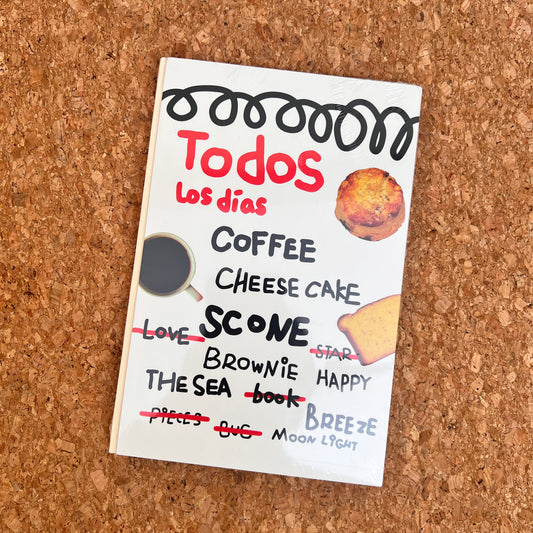 Todos
Los días
COFFEE
CHEESE CAKE
SCONE
LOVE
STAR
BROWNIE
HAPPY
THE SEA
book
BREEZE
PIECES
BUG
MOON LIGHT